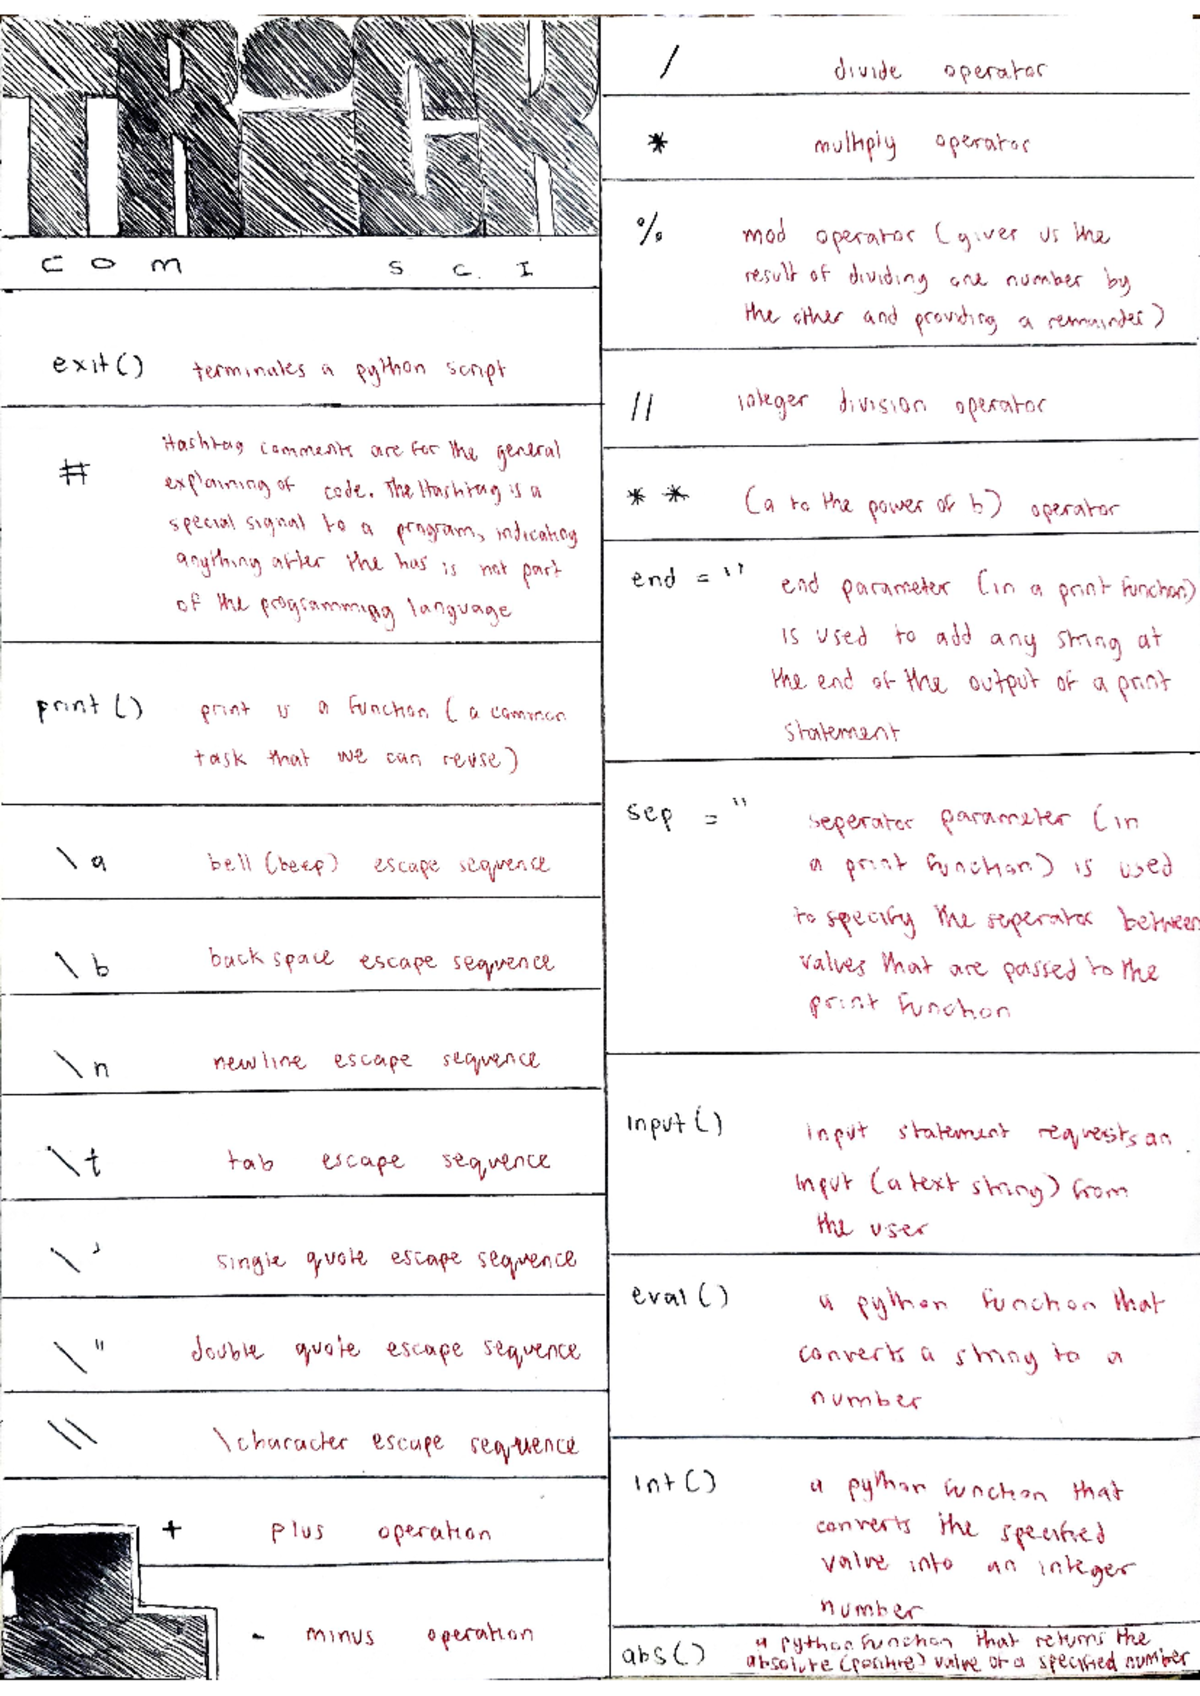 COM SC.I
exit() terminates a python script
# Hashtag comments are for the general
explaining of code. The Hashtag is a
special signal to a program, indicating
anything after the has is not part
of the programming language
print() print is a function (a common
task that we can reuse)
\a bell (beep) escape sequence
\b back space escape sequence
\n newline escape sequence
\t tab escape sequence
\' single quote escape sequence
\" double quote escape sequence
\\ \character escape sequence
+ plus operation
- minus operation
/ divide operator
* multiply operator
% mod operator (gives us the
result of dividing one number by
the other and providing a remainder)
// integer division operator
** (a to the power of b) operator
end = '' end parameter (in a print function)
is used to add any string at
the end of the output of a print
statement
sep = '' seperator parameter (in
a print function) is used
to specify the seperator between
values that are passed to the
print function
input() input statement requests an
input (a text string) from
the user
eval() a python function that
converts a string to a
number
int() a python function that
converts the specified
value into an integer
number
abs() a python function that returns the
absolute (positive) value of a specified number